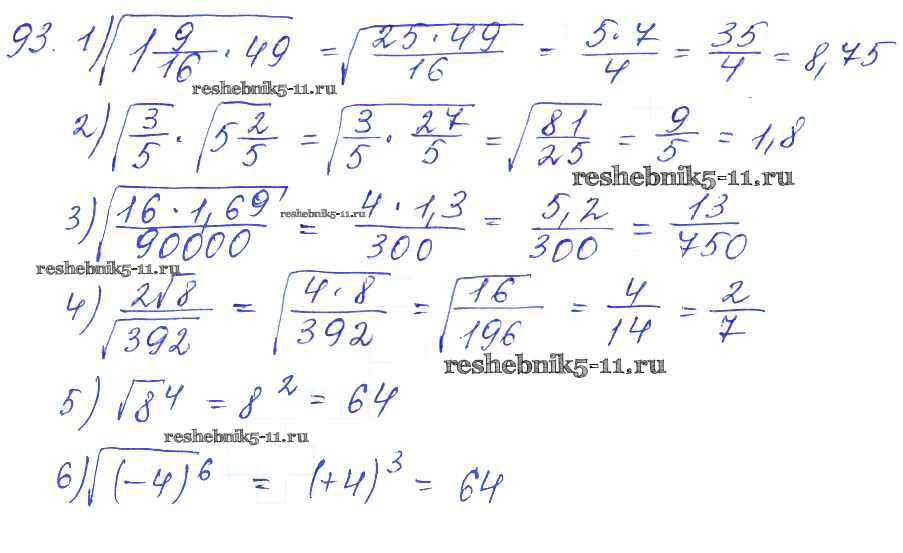 93. 1) √(1 9/16 · 49) = √(25 · 49 / 16) = 5 · 7 / 4 = 35/4 = 8,75
reshebnik5-11.ru
2) √(3/5) · √(5 2/5) = √(3/5 · 27/5) = √(81/25) = 9/5 = 1,8
reshebnik5-11.ru
3) √(16 · 1,69 / 90000) = 4 · 1,3 / 300 = 5,2/300 = 13/750
reshebnik5-11.ru
reshebnik5-11.ru
4) 2√8 / √392 = √(4 · 8 / 392) = √(16/196) = 4/14 = 2/7
reshebnik5-11.ru
5) √8⁴ = 8² = 64
reshebnik5-11.ru
6) √(-4)⁶ = (+4)³ = 64